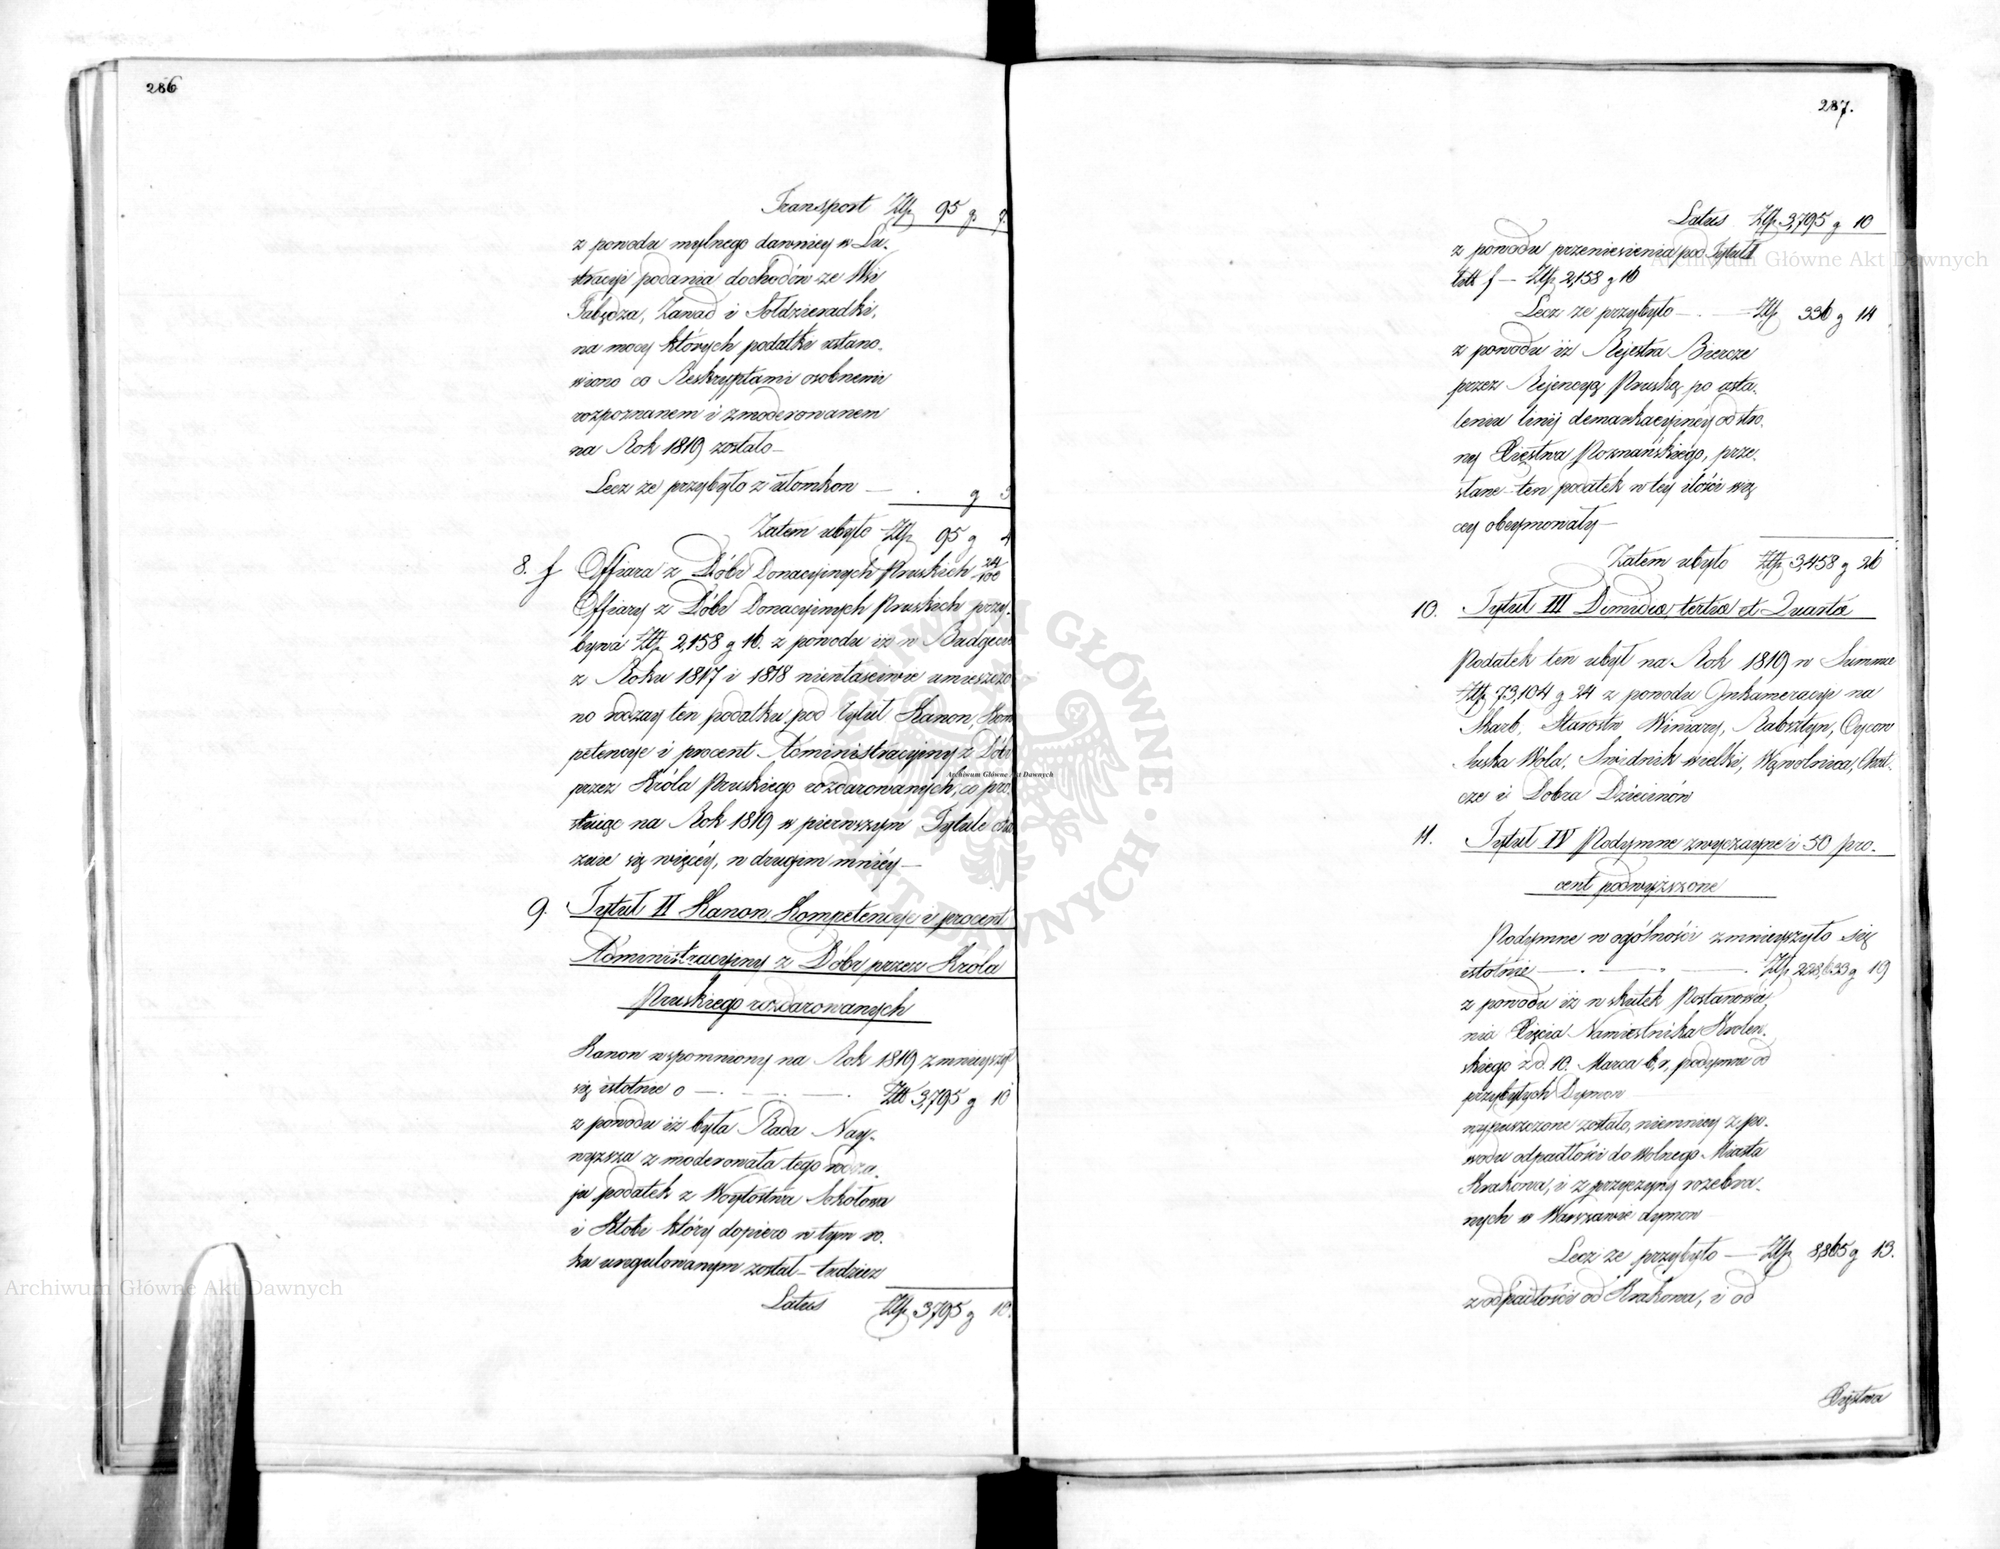 286
Transport Złp. 95 g.
z powodu mylnego dawniey w Lu-
stracyi podania dochodów ze Wsi
Zawad i
na mocy których podatki ustano-
wiono co Reskryptami osobnemi
rozpoznanem i zmoderowanem
na Rok 1819 zostało
Lecz że przybyło z ułomków — . g 3
Zatem ubyło Złp. 95 g 4
8. f Offiara z Dóbr Donacyjnych Pruskich 24/100
Offiary z Dóbr Donacyinych Pruskich przy-
bywa Złp. 2,158 g 16. z powodu iż w Budżecie
z Roku 1817 i 1818 niewłaściwie umieszczo
no rodzay ten podatku pod tytuł Kanon, Kom
petencye i procent Administracyiny z Dóbr
przez Króla Pruskiego rozdarowanych, co pro-
stuiąc na Rok 1819 w pierwszym Tytule oka
zuie się więcéy, w drugim mniéy —
9. Tytuł II Kanon, Kompetencye i procent
Administracyiny z Dóbr przez Króla
Pruskiego rozdarowanych
Kanon wspomniony na Rok 1819 zmnieyszył
się istotnie o — . — . — . Złp. 3,795 g 10
z powodu iż była Rada Nay-
wyższa zmoderowała tego rodza-
ju podatek z Woytostwa Sokołowa
i Kłobi który dopiero w tym ro-
ku uregulowanym został — tudzież
Latus Złp. 3,795 g 10.
287.
Latus Złp. 3,795 g 10
z powodu przeniesienia pod Tytuł I
litt f — Złp. 2,158 g 16
Lecz że przybyło — . — Złp. 336 g 14
z powodu iż Rejestra Biercze
przez Rejencyą Pruską po usta-
leniu linij demarkacyinéy od stro-
ny Xięstwa Poznańskiego, prze-
słane ten podatek w tey ilości wię
cey obeymowały —
Zatem ubyło Złp. 3,458 g 26
10. Tytuł III Dimidia, tertia et Quarta
Podatek ten ubył na Rok 1819 w Summie
Złp. 73,104 g 24 z powodu Inkameracyi na
Skarb, Starostw Winiary, Rabsztyn, Cycow
luska Wola, Świdnik wielki, Wąwolnica,
cze i Dobra Dziecinów
11. Tytuł IV Podymne zwyczayne i 50 pro-
cent podwyższone
Podymne w ogólności zmnieyszyło się
istotnie — . — . Złp. 228,633 g 19
z powodu iż w skutek Postanowie-
nia Xięcia Namiestnika Królew-
skiego z d. 10. Marca b. r. podymne od
przybyłych Dymow
wypuszczone zostało, niemniey z po-
wodu odpadłości do wolnego Miasta
Krakowa, i z przyczyny rozebra-
nych w Warszawie dymow
Lecz że przybyło — Złp. 8,865 g 13.
z odpadłości od Krakowa, i od
Xięstwa
Archiwum Główne Akt Dawnych
Archiwum Główne Akt Dawnych
Archiwum Główne Akt Dawnych
ARCHIWUM GŁÓWNE AKT DAWNYCH